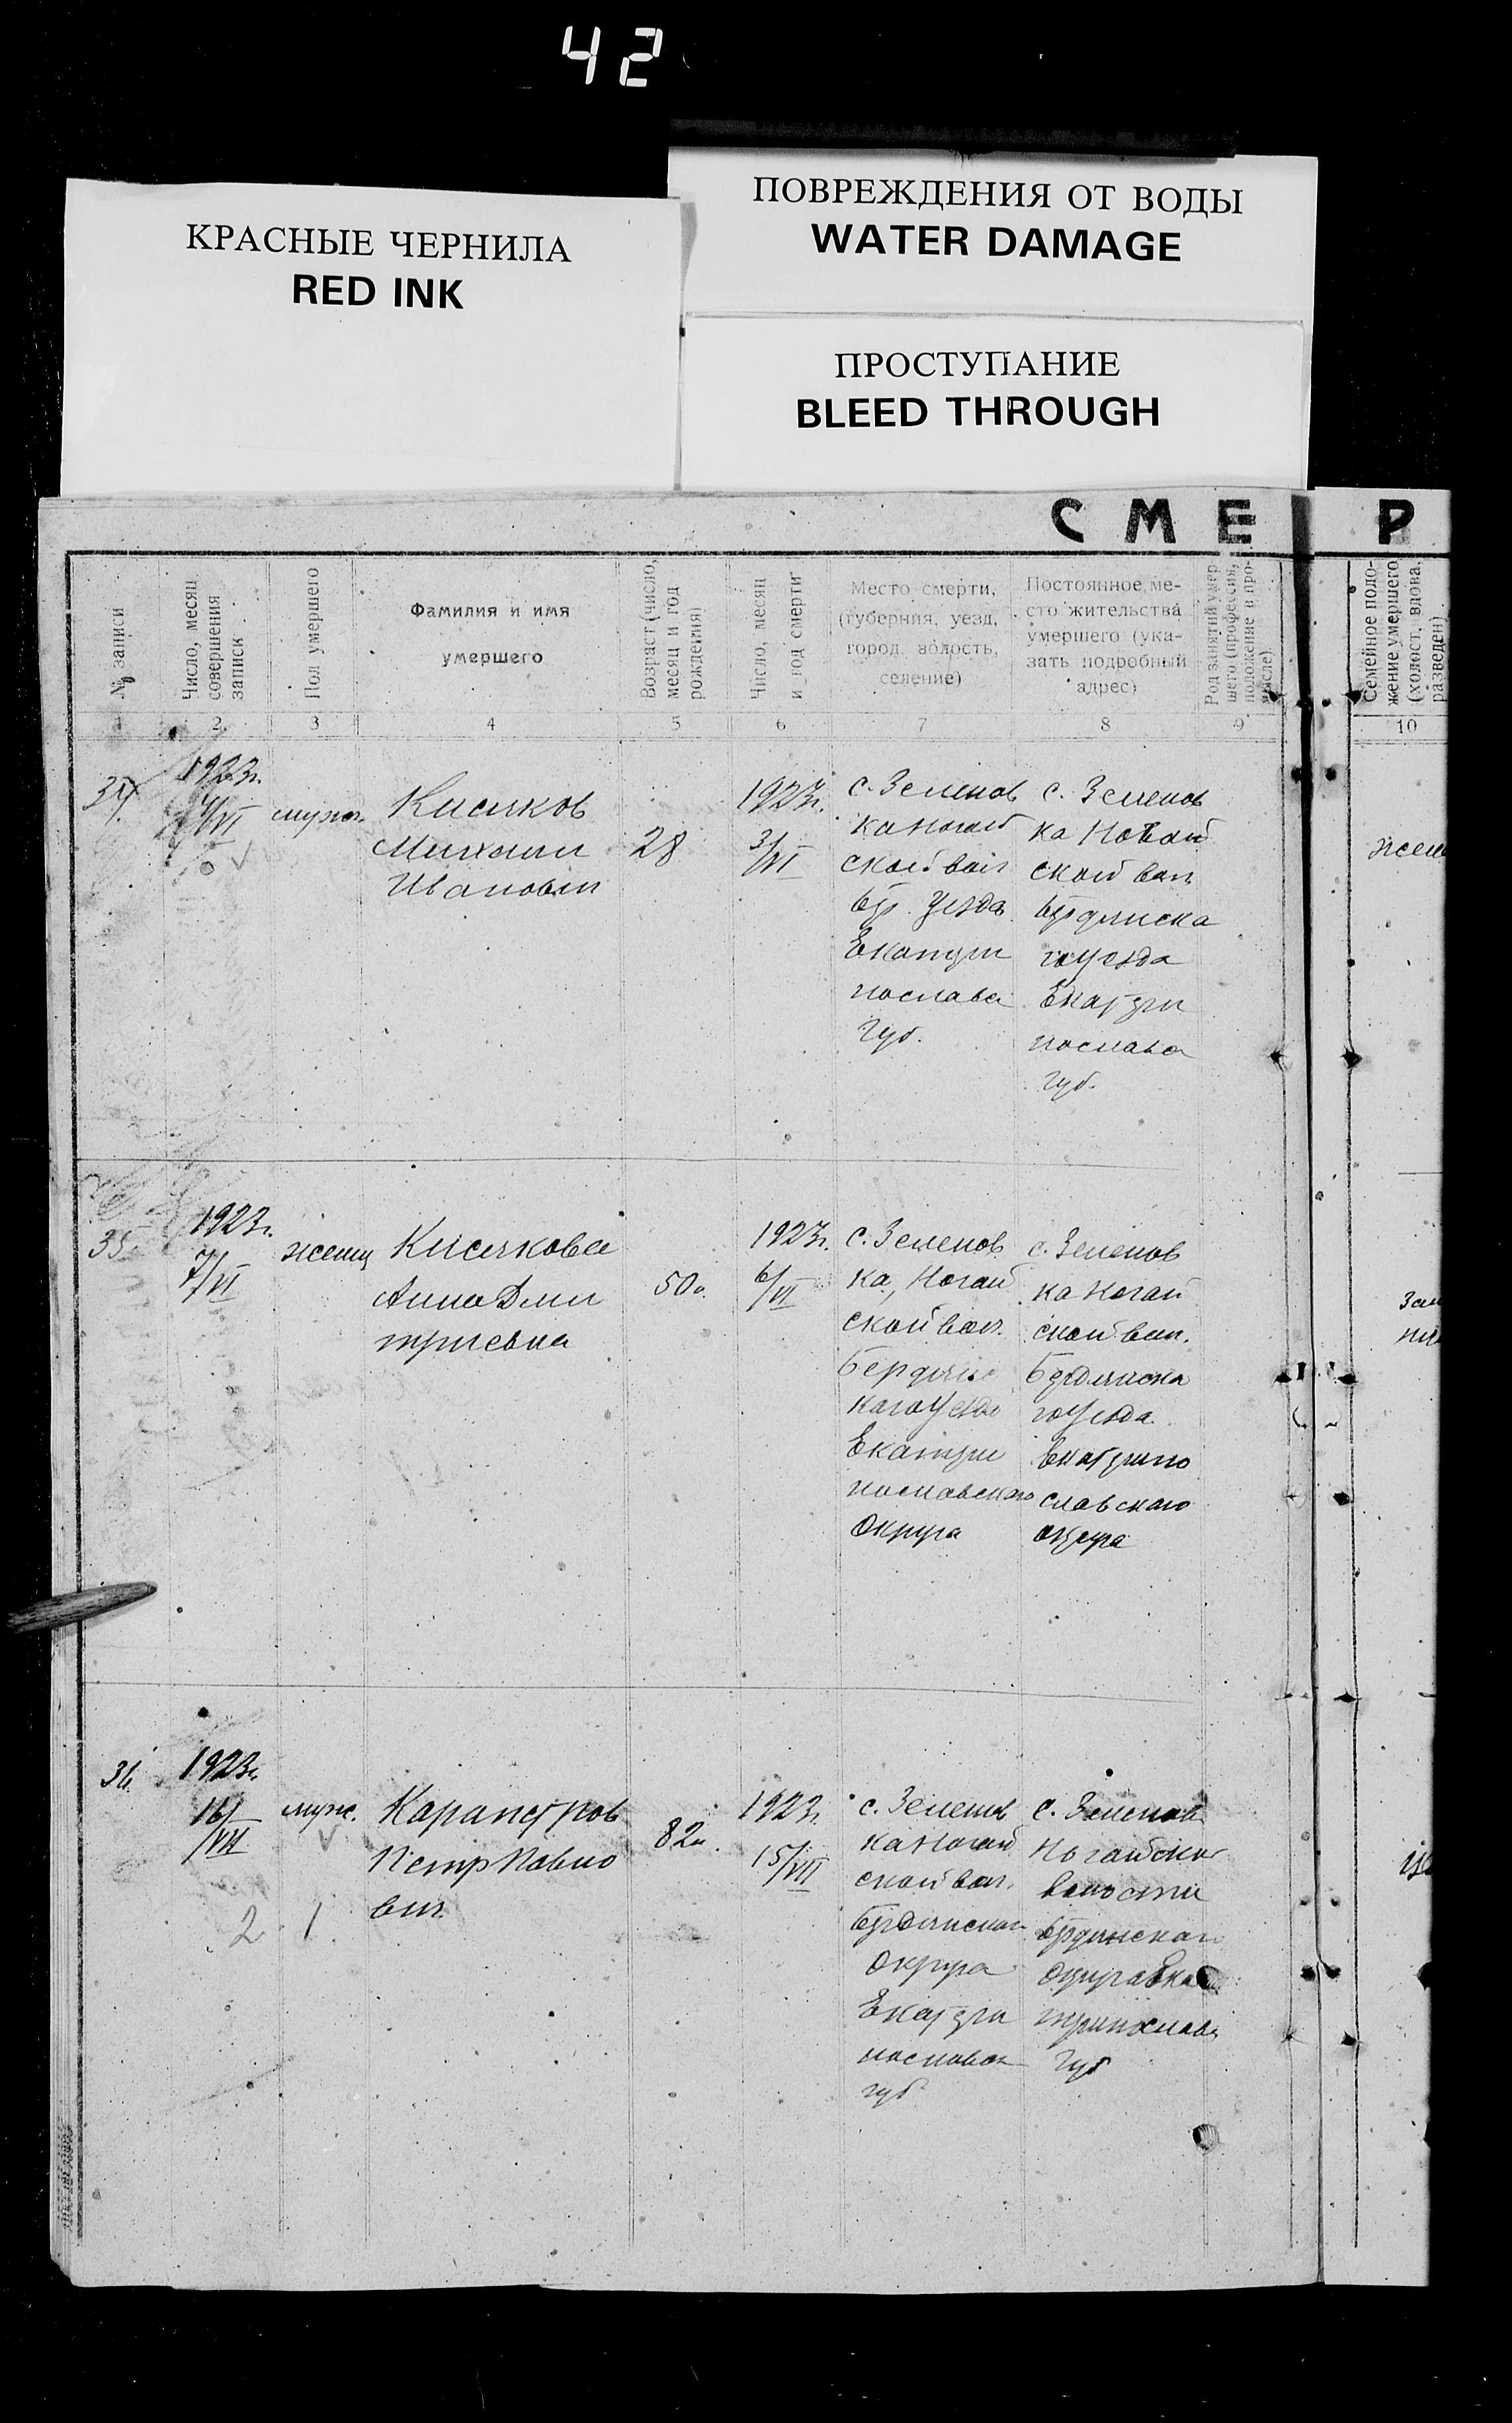 42
КРАСНЫЕ ЧЕРНИЛА
RED INK
ПОВРЕЖДЕНИЯ ОТ ВОДЫ
WATER DAMAGE
ПРОСТУПАНИЕ
BLEED THROUGH
СМЕ Р
№ записи
Число, месяц
совершения
записи
Пол умершего
Фамилия и имя
умершего
Возраст (число,
месяц и год
рождения)
Число, месяц
и год смерти
Место смерти,
(губерния, уезд,
город, волость,
селение)
Постоянное ме-
сто жительства
умершего (ука-
зать подробный
адрес)
Род занятий умер
шего (профессия,
положение в про-
мысле)
Семейное поло-
жение умершего
(холост, вдова,
разведен)
1 2 3 4 5 6 7 8 9 10
34
1923г.
4/VI
мужч.
Кисяков
Михаил
Иванович
28
1923г.
3/VI
с. Зеленов
ка Ногай
ской вол
Бер. Уезда
Екатери
нослава
Губ.
с. Зеленов
ка
ской вол
Бердянска
го Уезда
Екатери
нослава
губ.
жен
35
1923г.
7/VI
женщ
Кисякова
Анна Дми
триевна
50
1923г.
6/VI
с. Зеленов
ка, Ногай
ской вол.
Бердянс
каго Уезда
Екатери
нославского
Округа
с. Зеленов
ка Ногай
ской вол.
Бердянска
го Уезда
Екатерино
славскаго
округа
зам
36
1923г.
16/VII
муж.
Карапетров
Петр Павло
вич
82
1923г.
15/VII
с. Зеленов
ка Ногай
ской вол.
Бердянскаго
Округа
Екатери
нославск
губ
с. Зеленов
Ногайско
волости
Бердянскаго
Округа Ека
теринослав
Губ
2 1